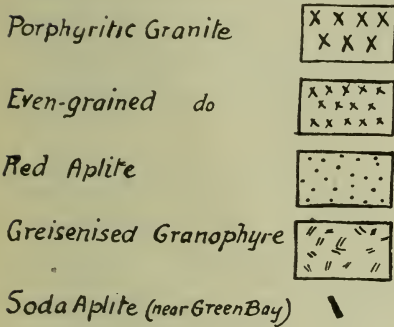 Porphyritic Granite
Even-grained do
Red Aplite
Greisenised Granophyre
Soda Aplite (near Green Bay)